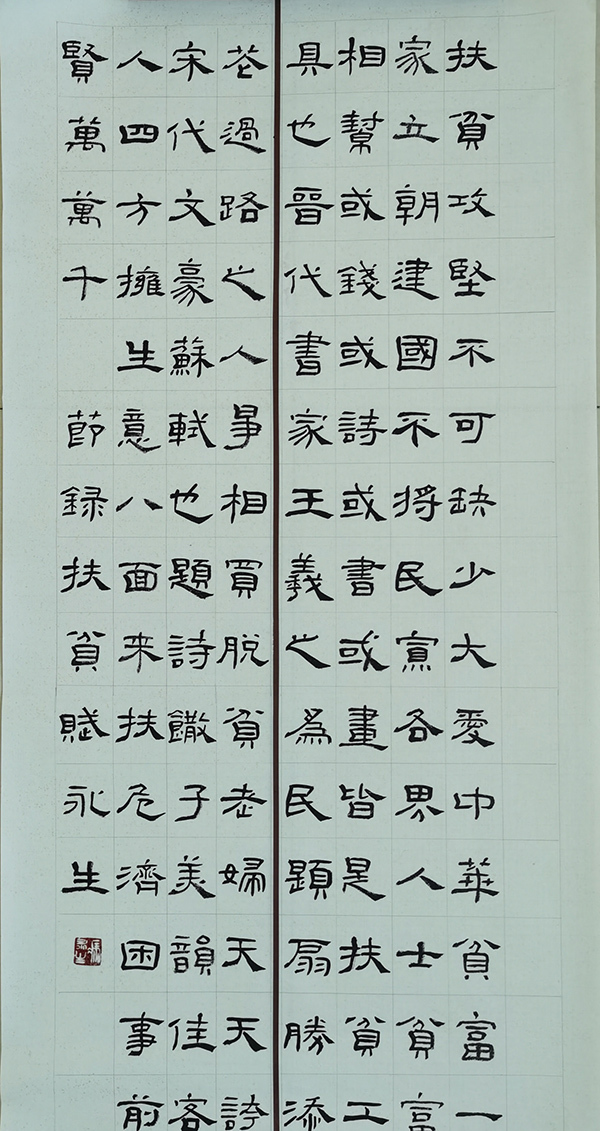 扶貧攻堅不可缺少大愛中華貧富一
家立朝建國不將民黨各界人士貧富
相幫或錢或詩或書或畫皆是扶貧工
具也晉代書家王羲之為民題扇勝添
花過路之人爭相買脫貧老婦天天誇
宋代文豪蘇軾也題詩饊子美韻佳客
人四方擁生意八面來扶危濟困事前
賢萬萬千 節録扶貧賦永生